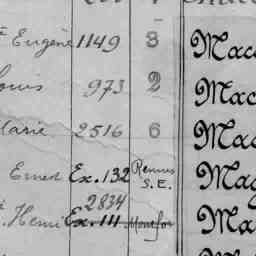 Eugène 1149 3 Mac
Louis 973 2 Mac
Marie 2516 6 Mac
Ernest Ex. 132 Rennes S.E. Mag
2834
Henri Ex. 111 Montfor Ma